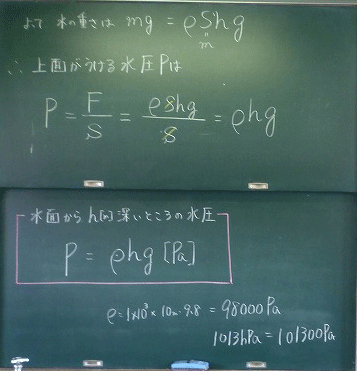 よって 水の重さは mg = ρShg
m
∴ 上面がうける水圧Pは
P = F/S = ρShg/S = ρhg
水面からh[m]深いところの水圧
P = ρhg [Pa]
ρ=1×10³ × 10m・9.8 = 98000Pa
1013hPa = 101300Pa